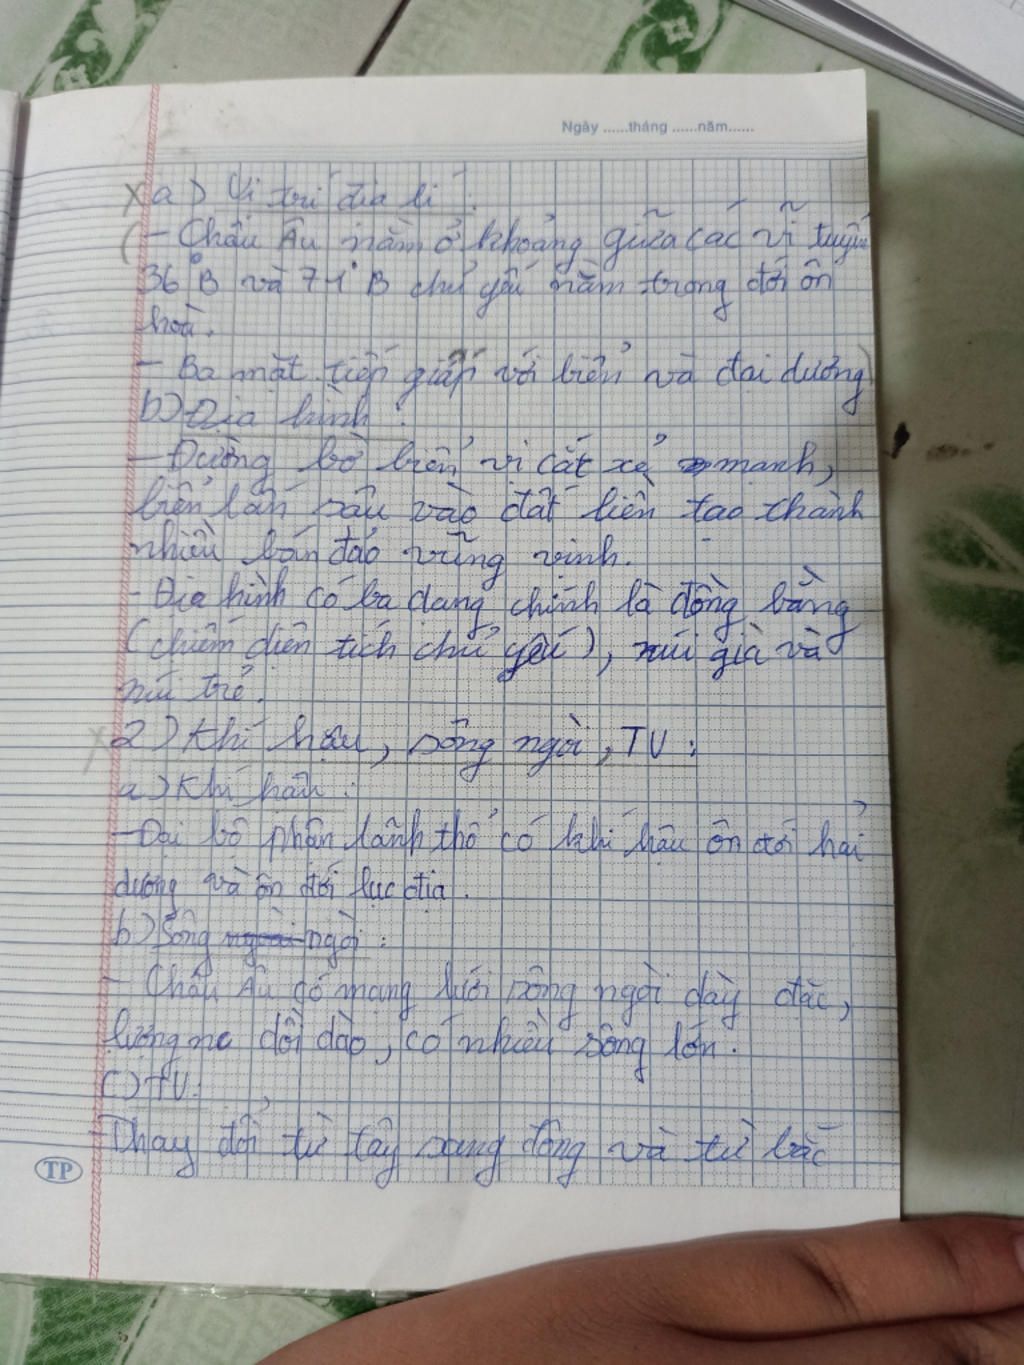 Ngày ......tháng ......năm......
a) Vị trí địa lí :
(- Châu Âu nằm ở khoảng giữa các vĩ tuyến
36°B và 71°B chủ yếu nằm trong đới ôn
hoà.
- Ba mặt tiếp giáp với biển và đại dương)
b) Địa hình :
- Đường bờ biển vị cắt xẻ mạnh,
biển lấn sâu vào đất liền tạo thành
nhiều bán đảo vũng vịnh.
- Địa hình có ba dạng chính là đồng bằng
(chiếm diện tích chủ yếu), núi già và
núi trẻ.
2) Khí hậu, sông ngòi, TV :
a) Khí hậu :
- Đại bộ phận lãnh thổ có khí hậu ôn đới hải
dương và ôn đới lục địa.
b) Sông ngòi :
- Châu Âu có mạng lưới sông ngòi dày đặc,
lượng nc dồi dào, có nhiều sông lớn.
c) TV:
- Thay đổi từ tây sang đông và từ bắc
TP